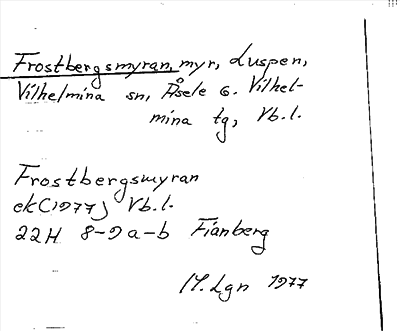 Frostbergsmyran, myr, Luspen,
Vilhelmina sn, Åsele G. Vilhel-
mina tg, Vb.l.
Frostbergsmyran
ek(1977) Vb.l.
22H 8-9a-b Fianberg
M.Lgn 1977